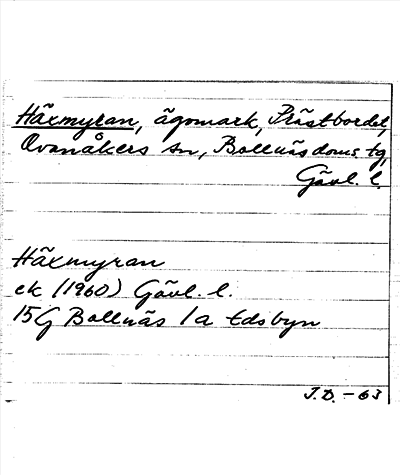 Häxmyran, ägomark, Prästbordet,
Ovanåkers sn, Bollnäs doms. tg,
Gävl. l.
Häxmyran
ek (1960) Gävl. l.
15G Bollnäs 1a Edsbyn
J.D. - 63